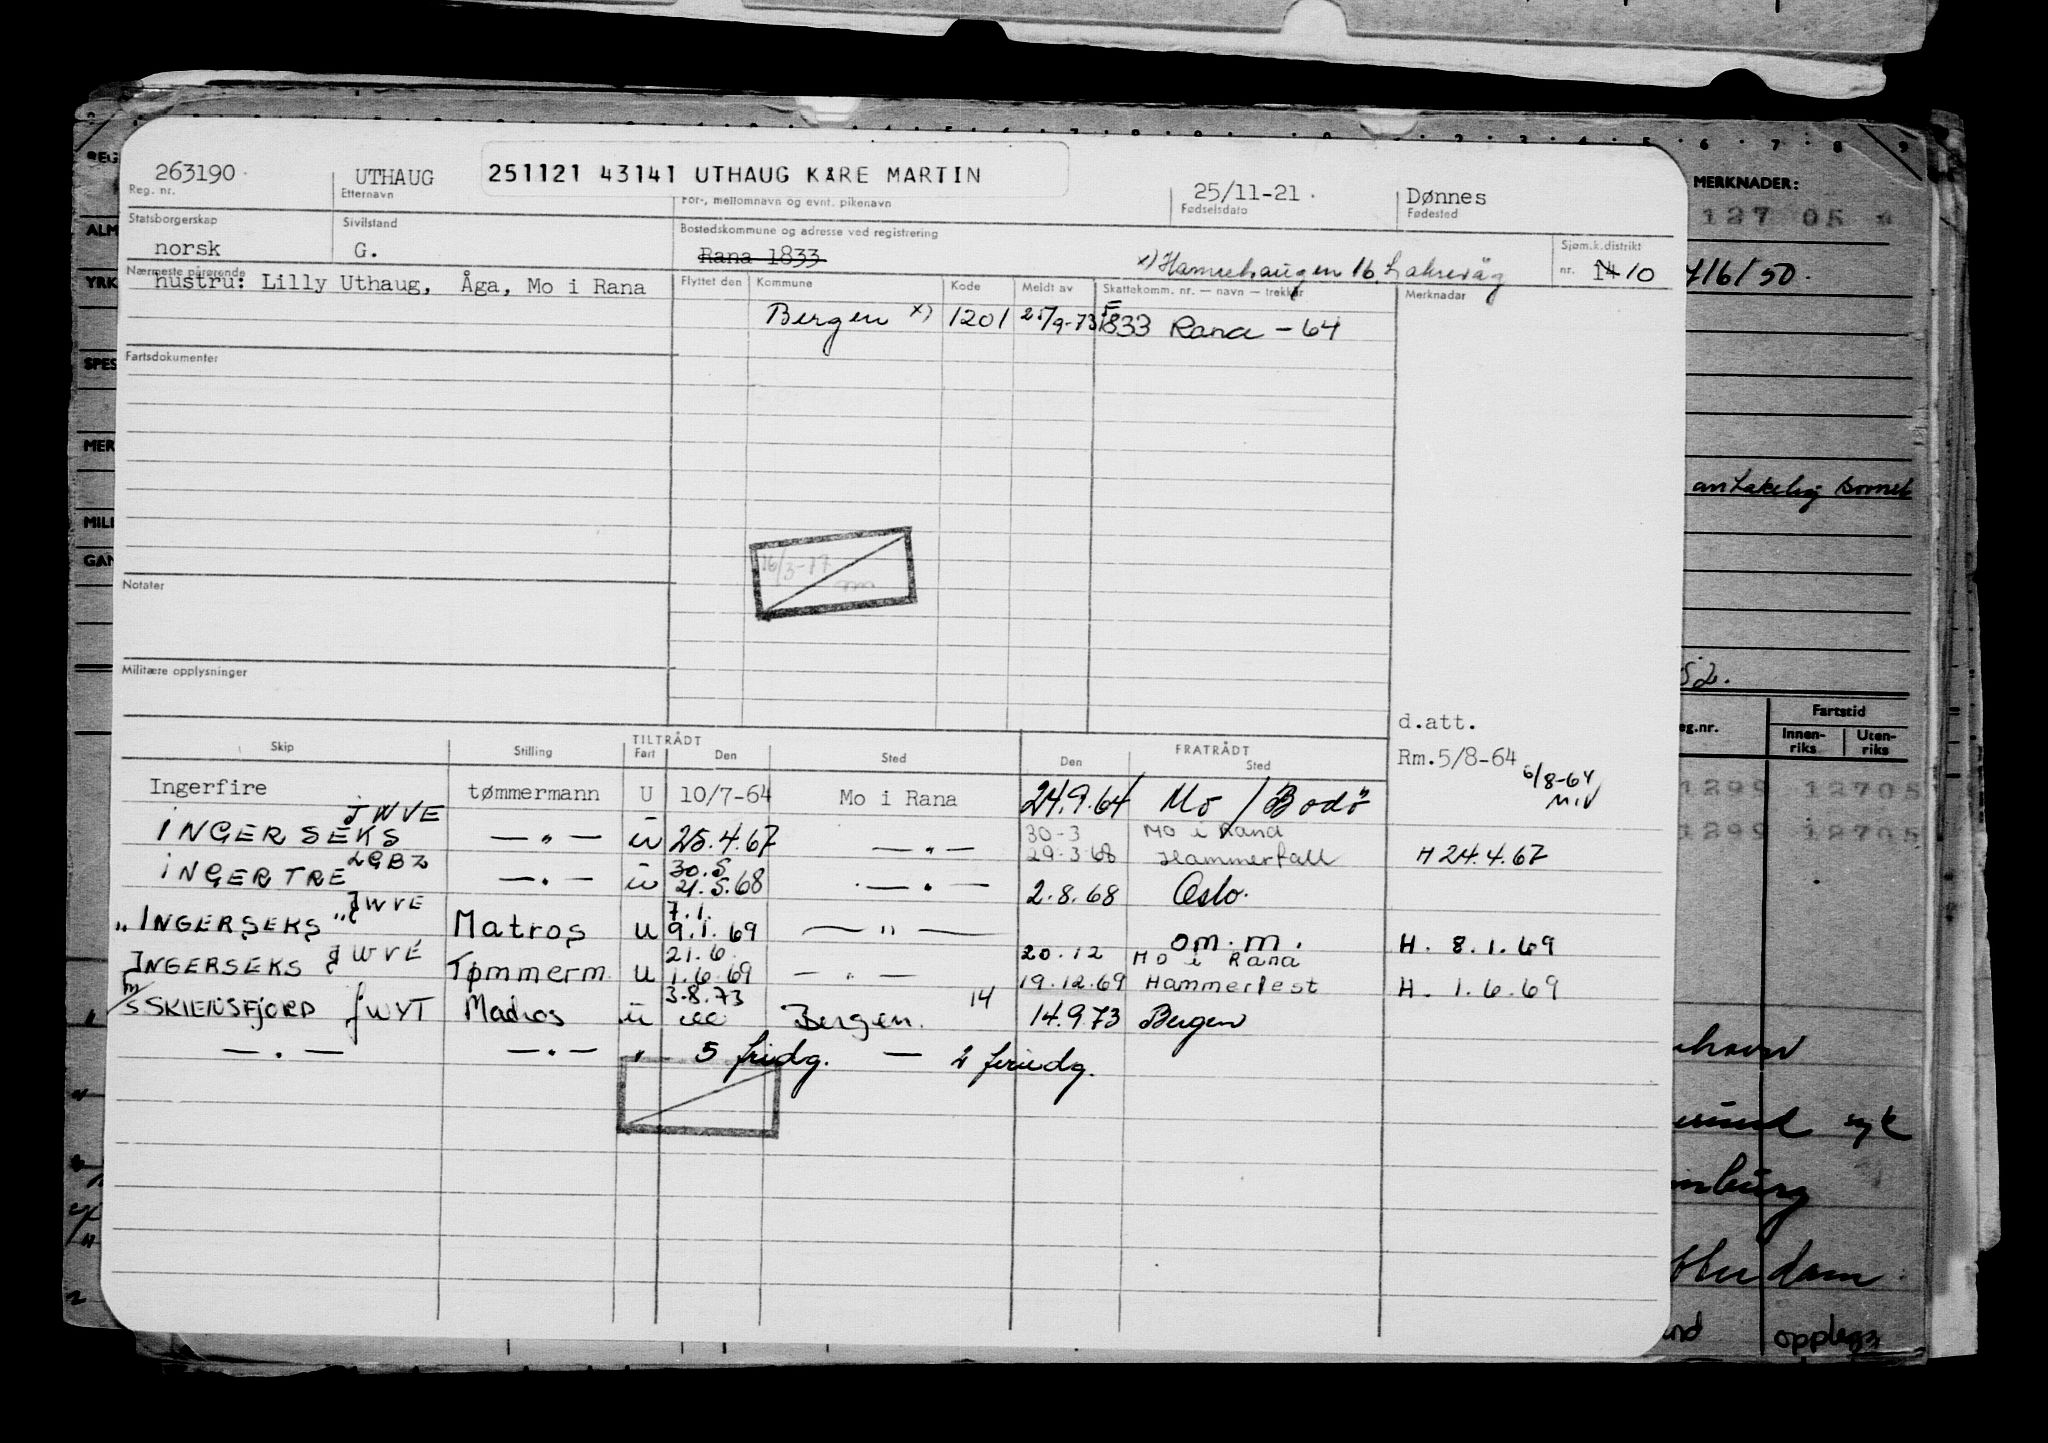 263190 UTHAUG 251121 43141 UTHAUG KÅRE MARTIN 25/11-21 Dønnes
Reg. nr. Etternavn For-, mellomnavn og evnt. pikenavn Fødselsdato Fødested
Statsborgerskap Sivilstand Bostedskommune og adresse ved registrering Sjøm.k.distrikt
norsk G. Rana 1833 nr. 14 10
Nærmeste pårørende
hustru: Lilly Uthaug, Åga, Mo i Rana
Flyttet den Kommune Kode Meldt av Skattekomm. nr. — navn — trekkår Merknader
Bergen x) 1201 25/9-73 1833 Rana - 64
Fartsdokumenter
16/3-77
Notater
Militære opplysninger
d.att.
TILTRÅDT FRATRÅDT
Skip Stilling Fart Den Sted Den Sted
Rm.5/8-64
6/8-64
Ingerfire tømmermann U 10/7-64 Mo i Rana 24.9.64 Mo / Bodø
JWVE 30-3 Mo i Rana
INGER SEKS — " — u 25.4.67 — " — 29.3.68 Hammerfall H 24.4.67
LGBZ 30.5
INGER TRE — " — u 21.5.68 — " — 2.8.68 Oslo.
JWVE 7.1.
"INGERSEKS" Matros u 9.1.69 — " — om.m. H. 8.1.69
JWVE 21.6 20.12 Mo i Rana
INGERSEKS Tømmerm. u 1.6.69 — " — 19.12.69 Hammerfest H. 1.6.69
3.8.73 14
m/s SKIENSFJORD JWYT Matros u Bergen. 14.9.73 Bergen
— " — — " — " 5 fridg. — 2 feriedg.
REG
ALM
YRK
SPES
MER
MILI
MERKNADER:
127 05 *
7/6/50.
52.
eg.nr. Fartstid
Innen-riks Uten-riks
1299 12705
1299 12705
syk
opplegg